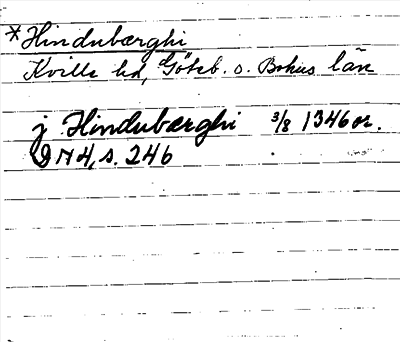 *Hindubærghi
Kville hd, Göteb. o. Bohus län
j Hindubærghi 3/8 1346 or.
DN 4, s. 246